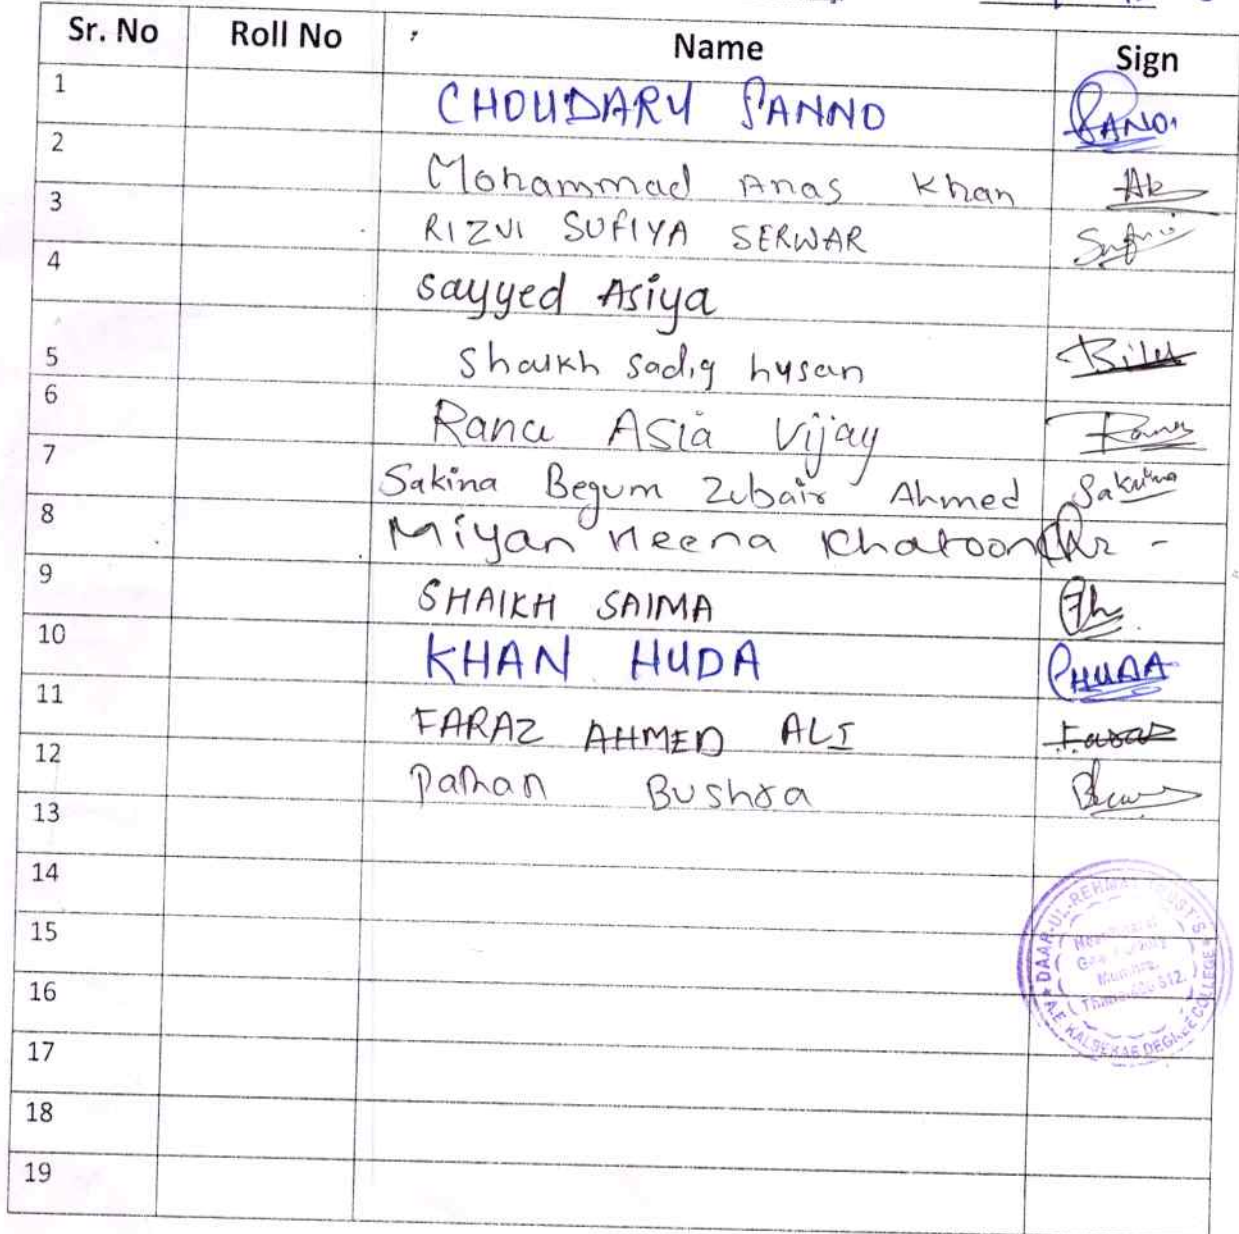 Sr. No Roll No Name Sign
1 CHOUDARY PANNO PANO.
2 Mohammad Anas Khan Ak
3 RIZVI SUFIYA SERWAR
4 Sayyed Asiya
5 Shaikh Sadiq husan
6 Rana Asia Vijay Rana
7 Sakina Begum Zubair Ahmed Sakina
8 Miyan Neena Khatoon
9 SHAIKH SAIMA
10 KHAN HUDA HUDA
11 FARAZ AHMED ALI Faraz
12 Pathan Bushra
13
14
15
16
17
18
19
DAAR-UL-REHMAT TRUST'S
Mumbra,
A.E. KALSEKAR DEGREE COLLEGE